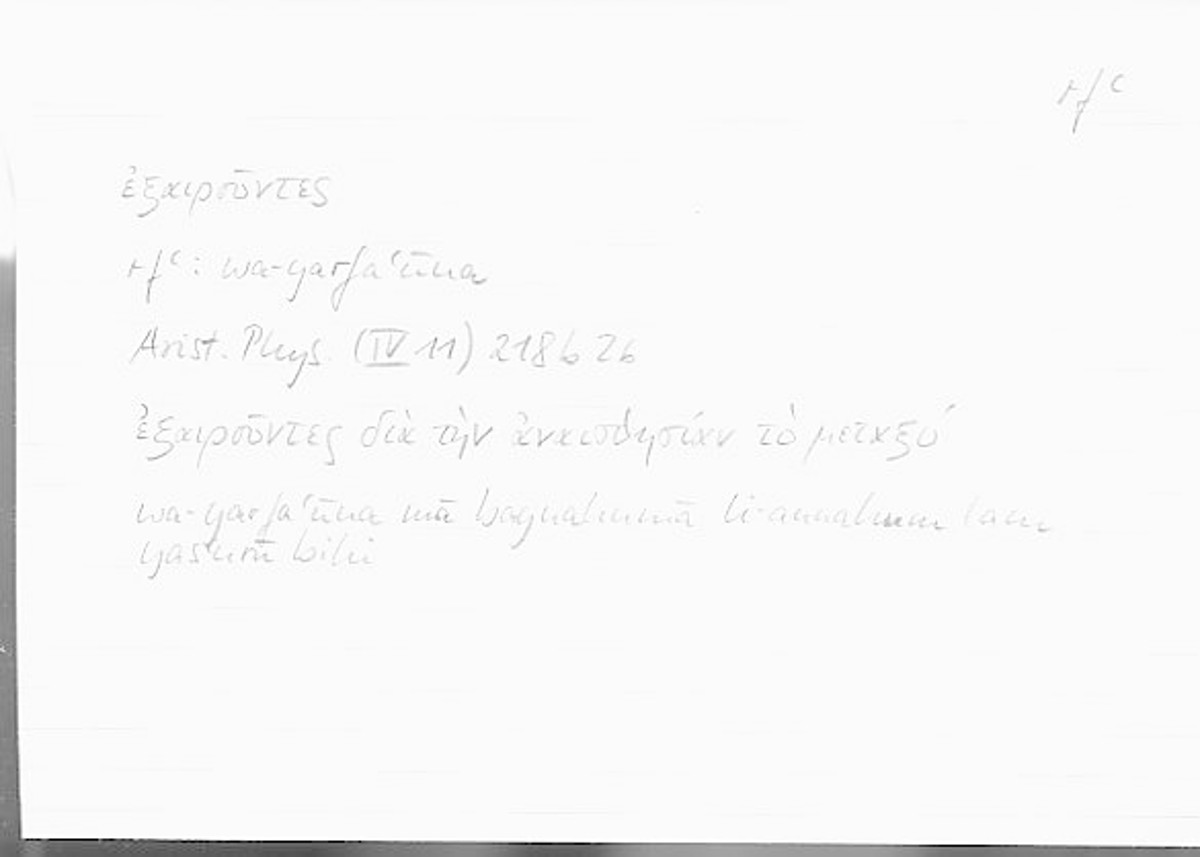 rfʿ
ἐξαιροῦντες
rfʿ: wa-yarfaʿūna
Arist. Phys. (IV 11) 218b26
ἐξαιροῦντες διὰ τὴν ἀναισθησίαν τὸ μεταξύ
wa-yarfaʿūna mā baynahumā li-annahum lam
yašʿurū bihi